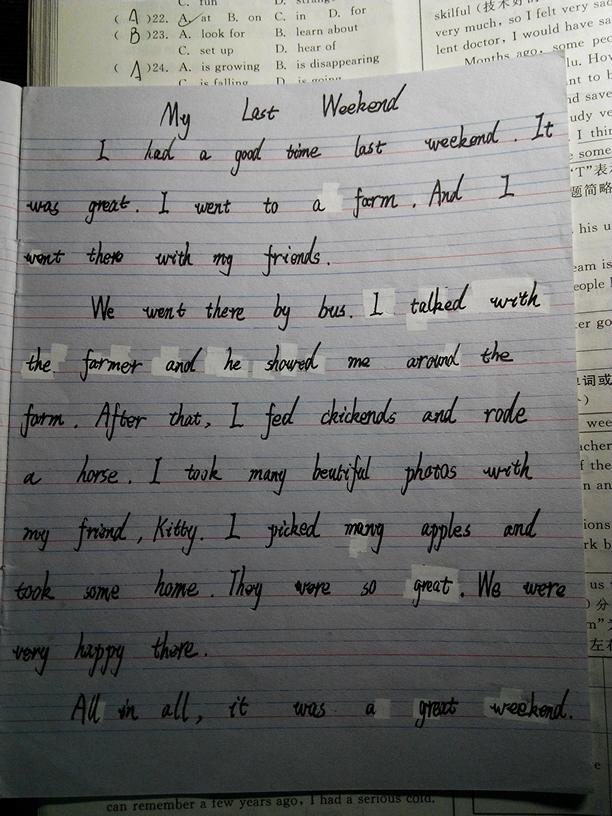 C. fun D. strange
( A )22. A. at B. on C. in D. for
( B )23. A. look for B. learn about
C. set up D. hear of
( A )24. A. is growing B. is disappearing
C. is falling D. is going
skilful (技术
very much, so I felt very
lent doctor, I would have
Months ago, some
My Last Weekend
I had a good time last weekend. It
was great. I went to a farm. And I
went there with my friends.
We went there by bus. I talked with
the farmer and he showed me around the
farm. After that, I fed ckickends and rode
a horse. I took many beutiful photos with
my friend, Kitty. I picked many apples and
took some home. They were so great. We were
very happy there.
All in all, it was a great weekend.
can remember a few years ago, I had a serious cold.